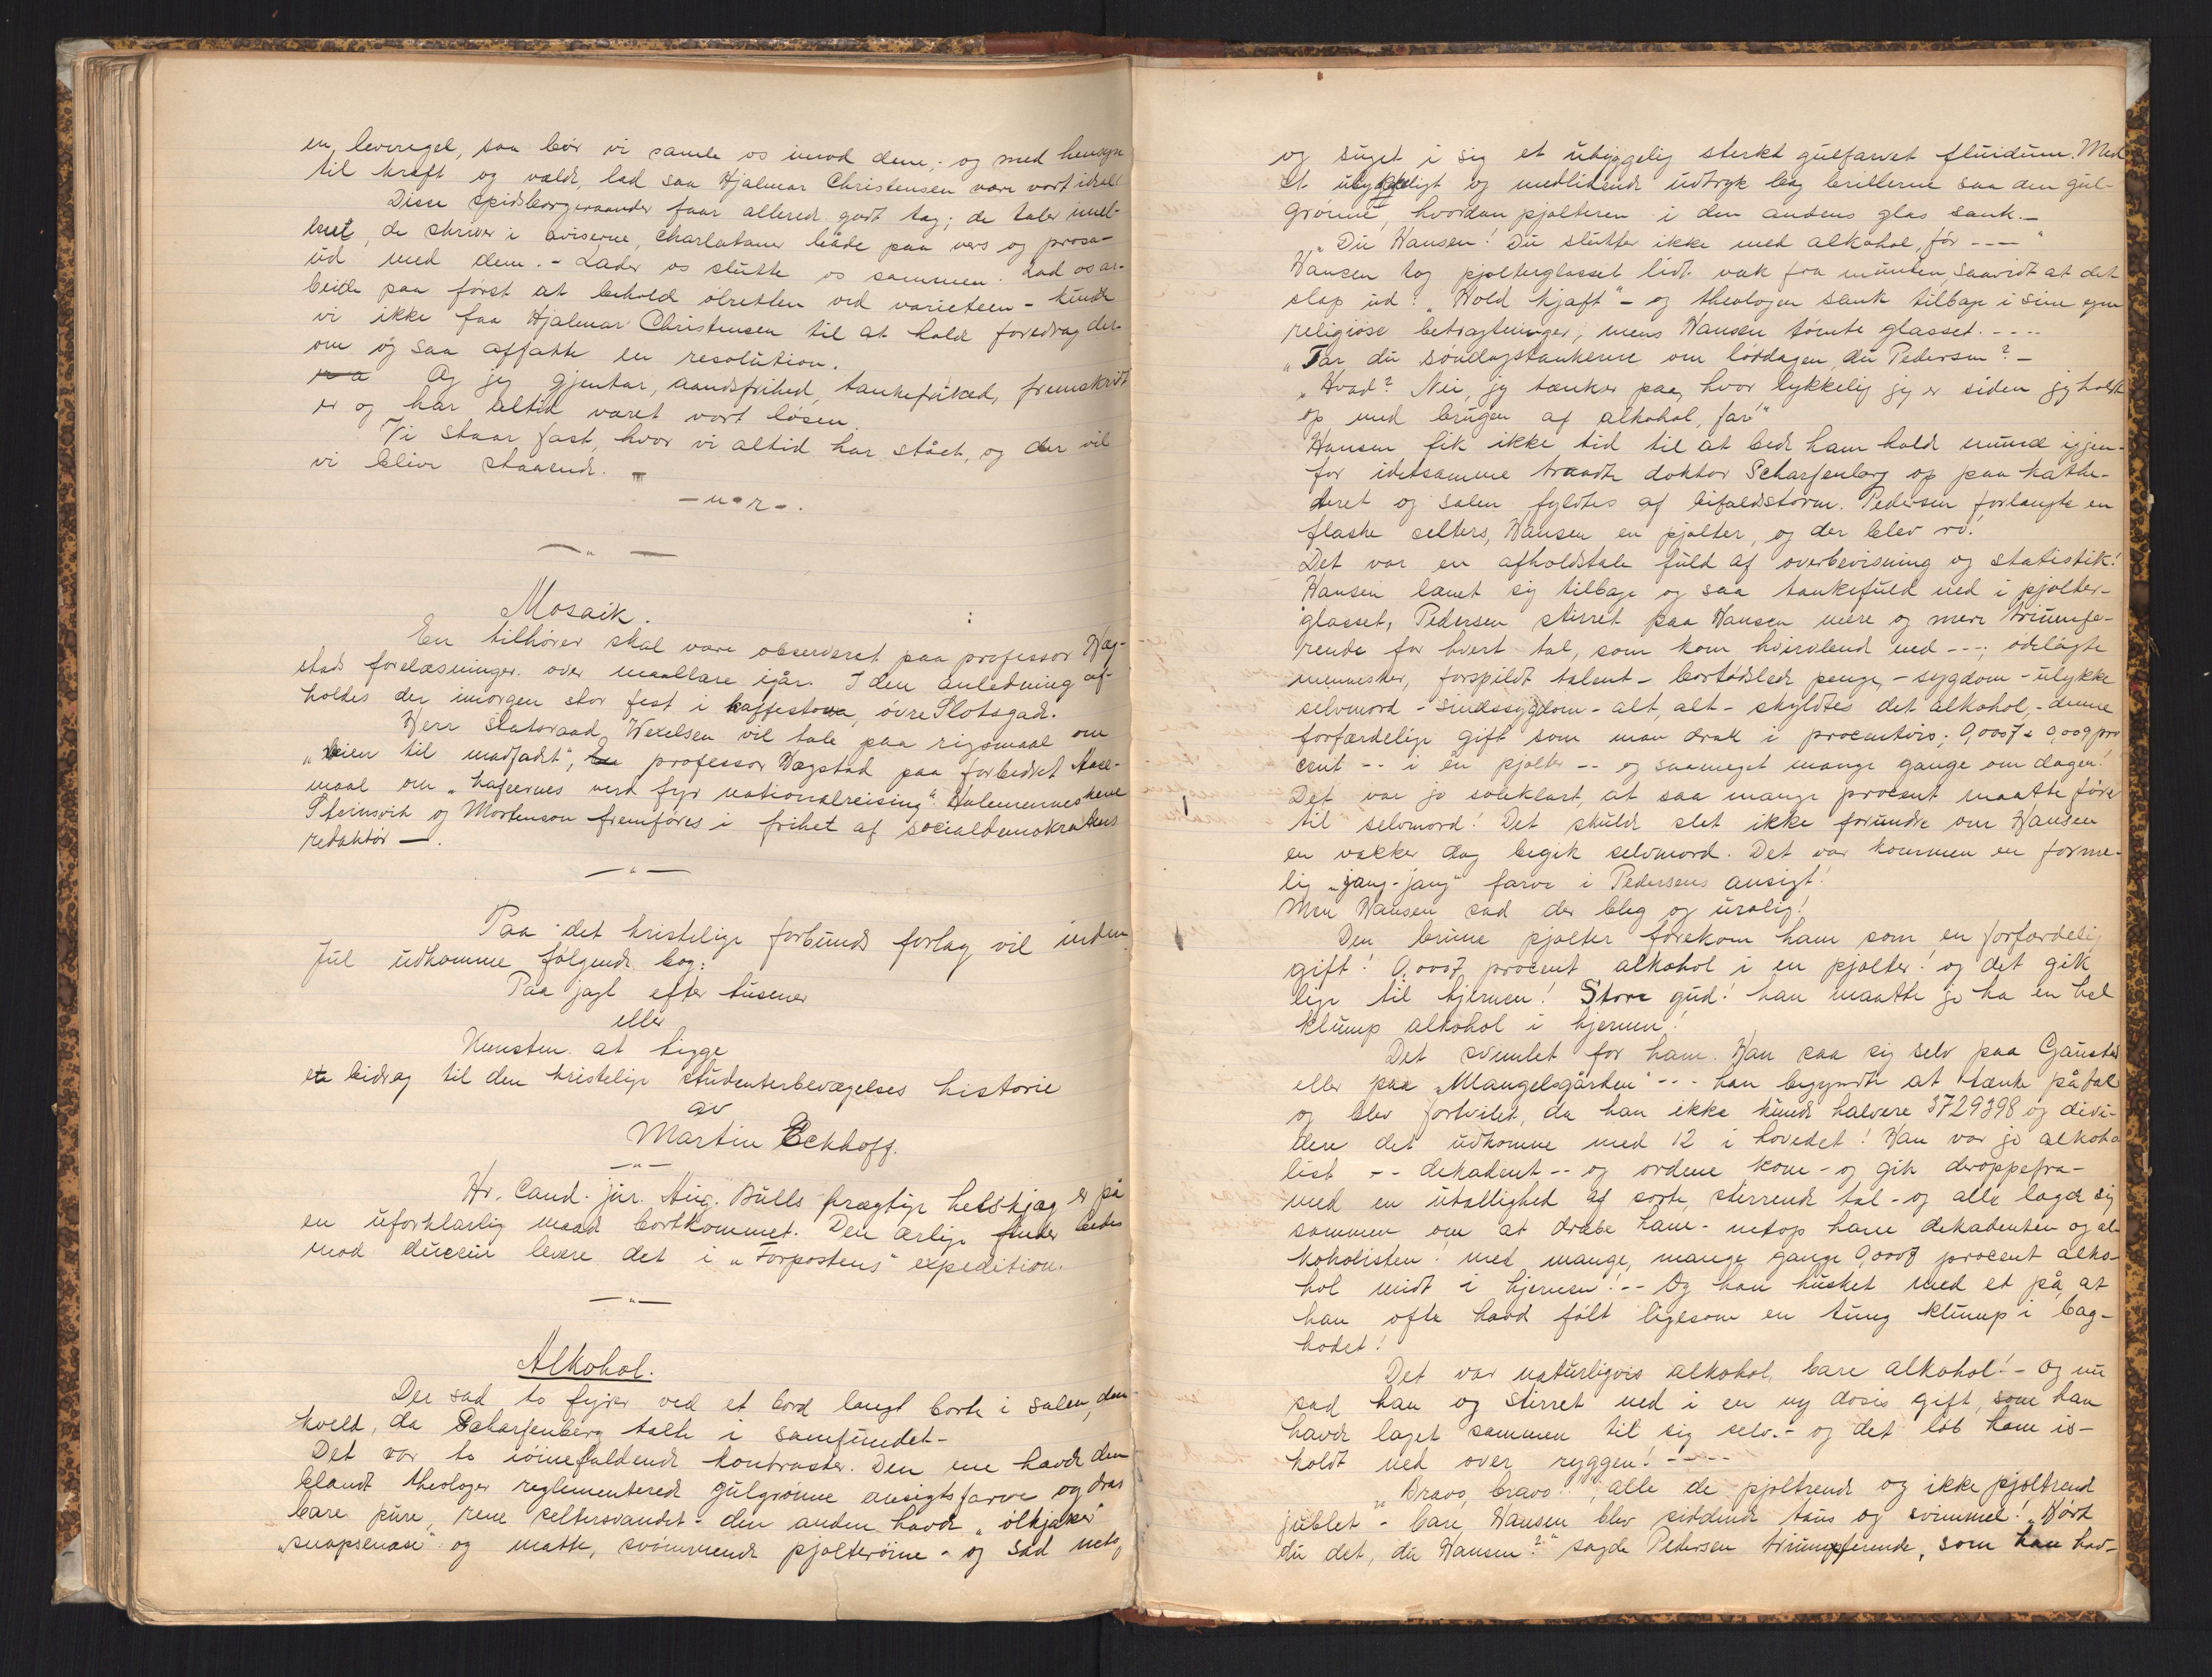 en leveregel, saa bør vi samle os imod dem; og med hensyn
til kraft og vælde, lad saa Hjalmar Christensen være vort ideal!
Disse spidsborgeraander faar allerede godt tag; de taler imel-
lem, de skriver i aviserne, charlataner både paa vers og prosa –
ud med dem. – Lader os slutte os sammen. Lad os ar-
beide paa først at beholde ølretten ved varieteen – kunde
vi ikke faa Hjalmar Christensen til at holde foredrag der-
om og saa affatte en resolution.
Og jeg gjentar, aandsfrihed, tankefrihed, fremskridt
er og har altid været vort løsen.
Vi staar fast, hvor vi altid har stået, og der vil
vi blive staaende. –
– n • r – .
— " —
Mosaik.
En tilhører skal være observeret paa professor Hæg-
stads forelæsninger over maallære igår. I den anledning af-
holdes der imorgen stor fest i kaffestova, øvre Slotsgade.
Herr statsraad Wexelsen vil tale paa rigsmaal om
„veien til madfadet“, professor Hægstad paa forbedret Aase-
maal om „kafeernes verd fyr nationalreising“. Halemenneskene
Steinsvik og Mortenson fremføres i frihet af socialdemokratens
redaktør — .
— " —
Paa det kristelige forbunds forlag vil inden
Jul udkomme følgende bog:
Paa jagt efter tusener
eller
Kunsten at tigge
et bidrag til den kristelige studenterbevægelses historie
av
Martin Eckhoff.
— " —
Hr. Cand. jur. Aug. Bulls prægtige helskjæg er på
en uforklarlig maade bortkommet. Den ærlige finder bedes
mod dusør levere det i „Forpostens“ expedition.
— " —
Alkohol.
Der sad to fyrer ved et bord langt borte i salen, den
kveld, da Scharfenberg talte i samfundet –
Det var to iøinefaldende kontraster. Den ene havde den
blandt theologer reglementerede gulgrønne ansigtsfarve og drak
bare pure, rene seltersvandet – den anden havde „ølkjæker“
„snapsenase“ og matte, svømmende pjolterøine – og sad netop
og suget i sig et uhyggelig sterkt gulfarvet fluidum. Med
et uhyggeligt og medlidende udtryk bag brillerne saa den gul-
grønne, hvordan pjolteren i den andens glas sank. –
„Du Hansen! Du slutter ikke med alkohol, før – – –“
Hansen tog pjolterglasset lidt væk fra munden, saavidt at det
slap ud: „Hold kjæft“ – og theologen sank tilbage i sine egne
religiøse betragtninger, mens Hansen tømte glasset. – – –
„Tar du søndagstankerne om lørdagen, du Pedersen? –
„Hvad? Nei, jeg tænker paa, hvor lykkelig jeg er siden jeg holdt
op med brugen af alkohol, far“
Hansen fik ikke tid til at bede ham holde mund igjen –
for idetsamme traadte doktor Scharfenberg op paa kathe-
deret og salen fyldtes af bifaldsstorm. Pedersen forlangte en
flaske selters, Hansen en pjolter, og der blev ro!
Det var en afholdstale fuld af overbevisning og statistik!
Hansen lænet sig tilbage og saa tankefuld ned i pjolter-
glasset, Pedersen stirret paa Hansen mere og mere triumfe-
rende for hvert tal, som kom hvirvlende ned – – –; ødelagte
mennesker, forspildt talent – bortødslede penge, – sygdom – ulykke
selvmord – sindssygdom – alt, alt – skyldtes det alkohol, – denne
forfærdelige gift som man drak i procentvis; 0,0007 à 0,009 pro
cent – – i en pjolter – – og saameget mange gange om dagen!
Det var jo soleklart, at saa mange procent maatte føre
til selvmord! Det skulde slet ikke forundre om Hansen
en vakker dag begik selvmord. Det var kommen en forme-
lig „jang-jang“ farve i Pedersens ansigt!
Men Hansen sad der bleg og urolig!
Den brune pjolter forekom ham som en forfærdelig
gift! 0,0007 procent alkohol i en pjolter! og det gik
lige til hjernen! Store gud! han maatte jo ha en hel
klump alkohol i hjernen!
Det svimlet for ham. Han saa sig selv paa Gaustad
eller paa „Mangelsgården“ – – – han begyndte at tænke på tal
og blev fortvilet, da han ikke kunde halvere 3729398 og divi-
dere det udkomne med 12 i hovedet! Han var jo alkoho
list – – dekadent – – og ordene kom – og gik deroppefra –
med en utallighed af sorte, stirrende tal – og alle lagde sig
sammen om at dræbe ham – netop ham dekadenten og al-
koholisten! med mange, mange gange 0,0007 procent alko-
hol midt i hjernen! – – Og han husket med et på, at
han ofte havd følt ligesom en tung klump i bag-
hodet!
Det var naturligvis alkohol, bare alkohol! – Og nu
sad han og stirret ned i en ny dosis gift, som han
havde laget sammen til sig selv. – og det løb ham is-
koldt ned over ryggen! – – – –
„Bravo, bravo!“, alle de pjoltrende og ikke pjoltrende
jublet – bare Hansen blev siddende taus og svimmel! „Hørt
du det, du Hansen?“ sagde Pedersen triumpferende, som han hav-